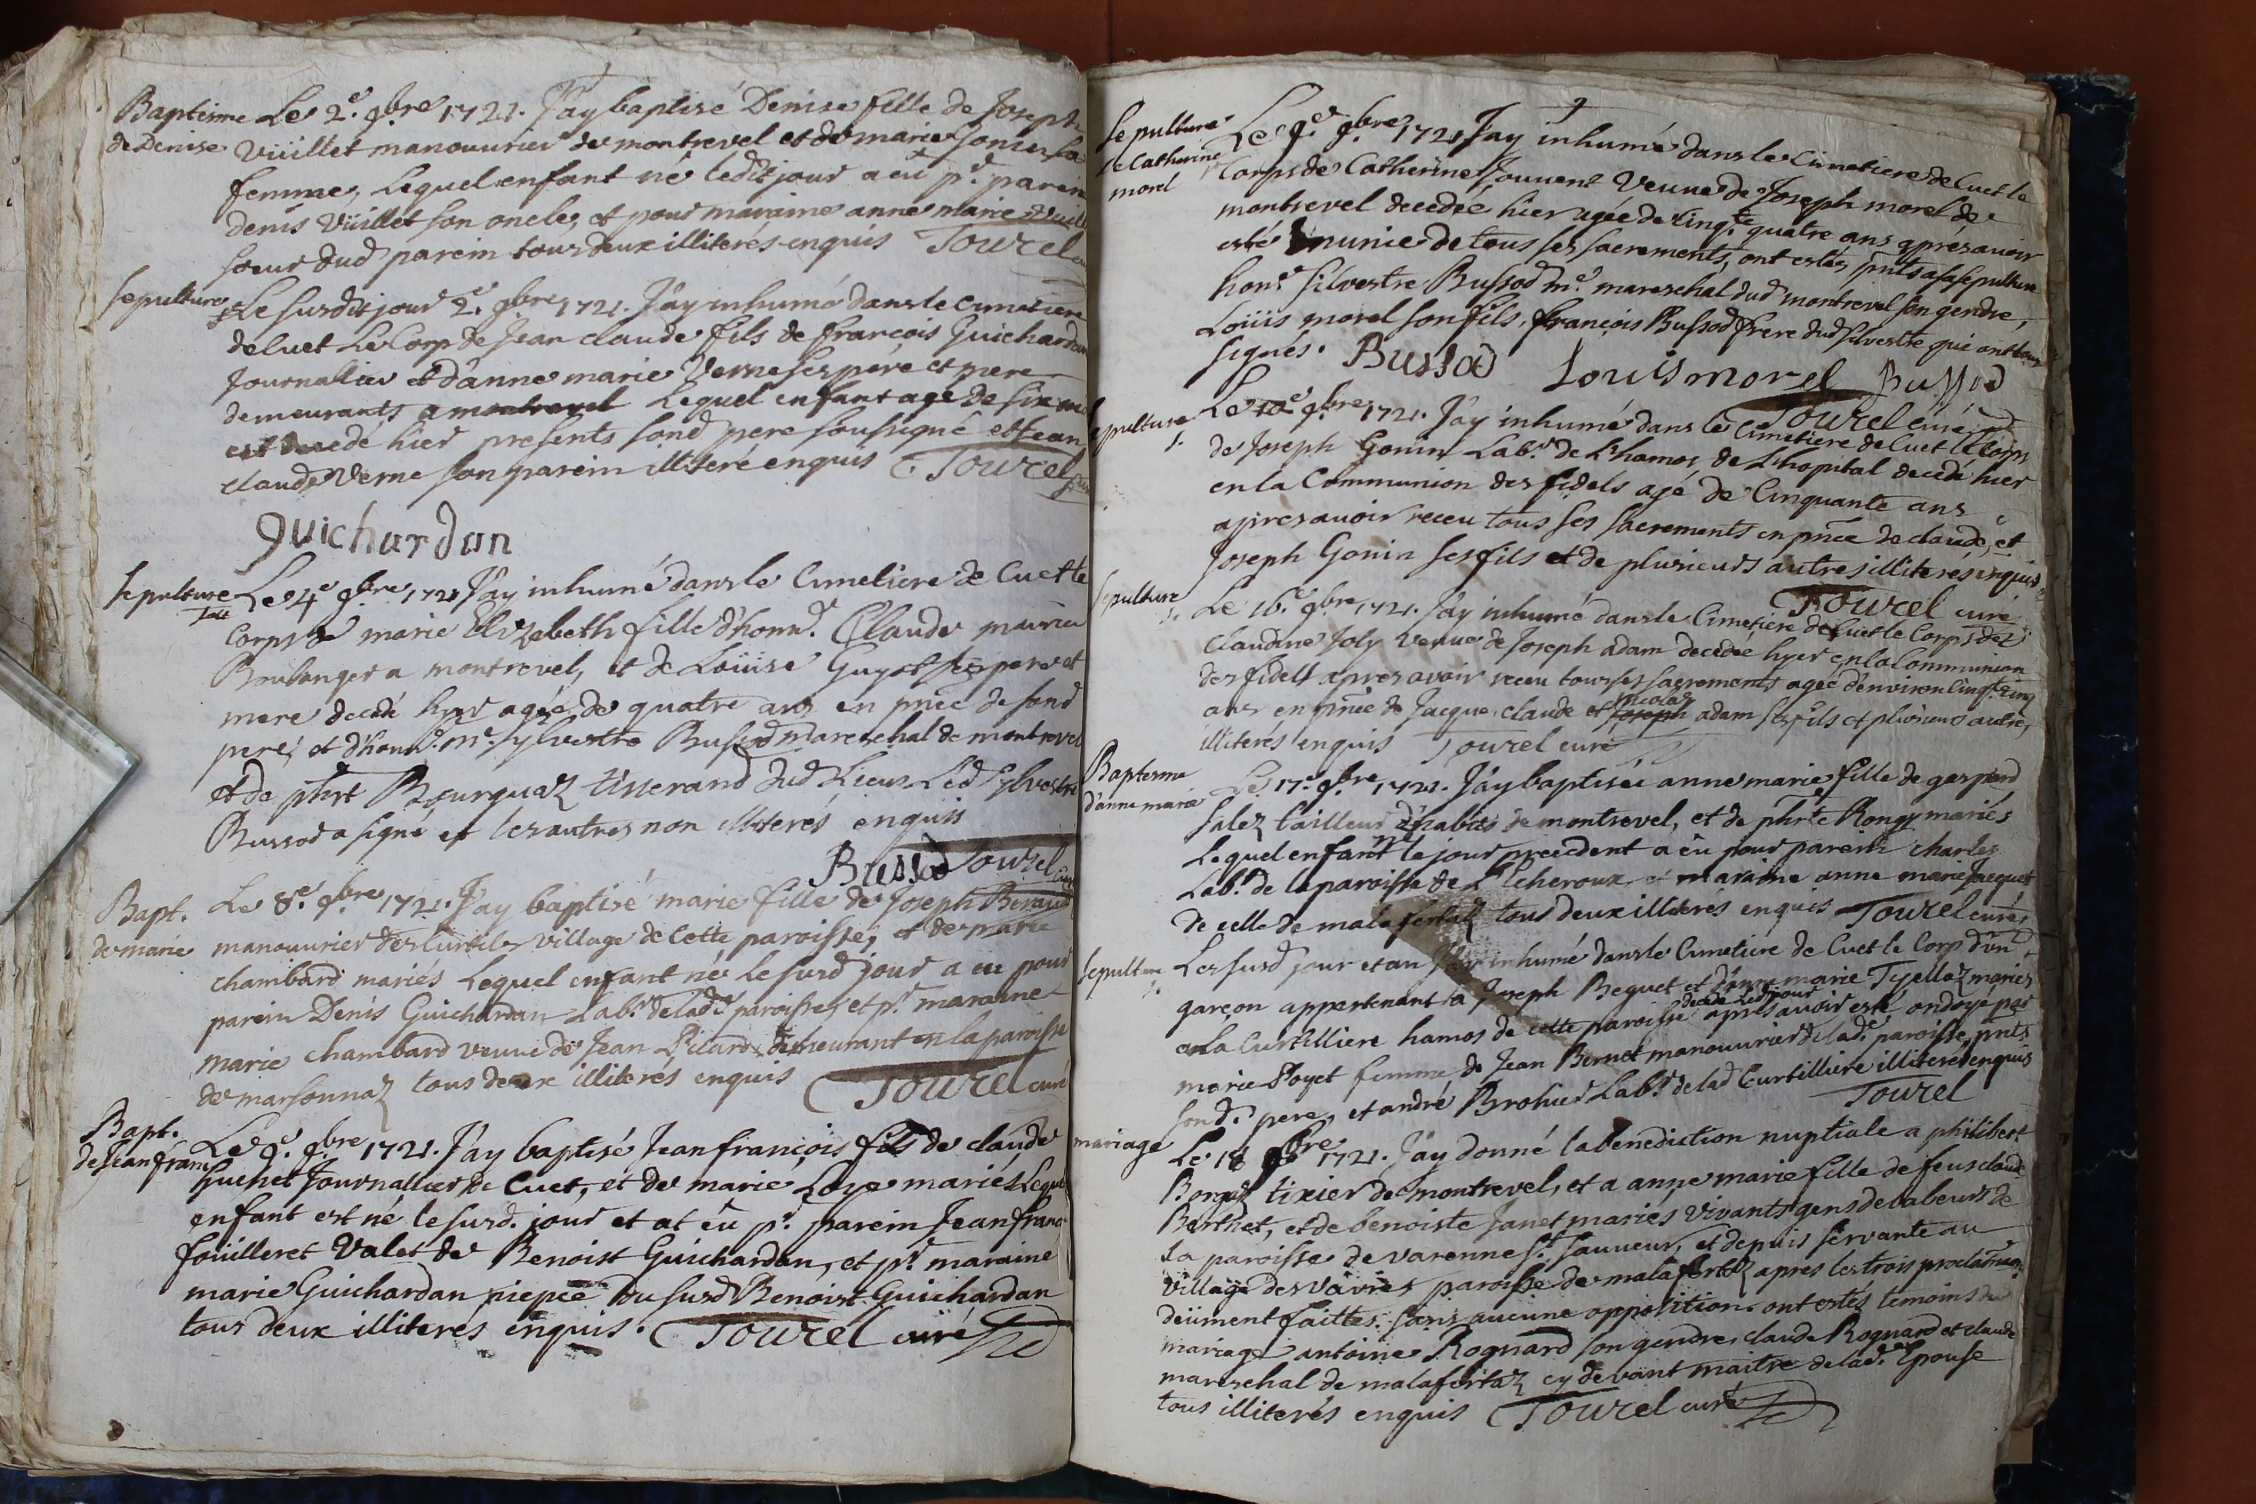 Baptesme Le 2e. 9bre 1721. J'ay baptisé Denise fille de Joseph
de Denise Vüillet manouvrier de montrevel et de marie
femme, Lequel enfant né ledit jour a eu pr. parein
denis Vüillet son oncle, et pour maraine anne marie
soeur dud parein tous deux illiterés enquis Tourel
sepulture Le susdit jour 2e. 9bre 1721. J'ay inhumé dans le Cimetiere
de Cuet Le Corp de Jean claude fils de françois Guichardan
Journallier et d'anne marie Verne ses pere et mere
demeurants a montrevel Lequel enfant agé de six
est decedé hier presents sond pere soussigné et Jean
claude Verne son parein illiteré enquis Tourel
Guichardan
sepulture Le 4e 9bre 1721 J'ay inhumé dans le Cimetiere de Cuet le
Corps de marie Elizabeth fille d'honn. Claude
Boulanger a montrevel, et de Loüise Guyot ses pere et
mere decedé hyer agée de quatre ans en pnce de sond
pere, et d'honn. me. Sylvestre Bussod mareschal de montrevel
et de phrt Bourguaz tisserand dud Lieu. Led Sylvestre
Bussod a signé et les autres non illiterés enquis
Bussod Tourel
Bapt. Le 8e. 9bre 1721. J'ay baptisé marie fille de Joseph Beraud
de marie manouvrier des Curtils village de Cette paroisse, et de marie
chambard mariés Lequel enfant né le susd jour a eu pour
parein Denis Guichardan Labr. de lad. paroisse, et pr. maraine
marie chambard veuve de Jean Picard demeurant en la paroisse
de marsonnaz tous deux illiterés enquis Tourel curé
Bapt. Le 9e. 9bre 1721. J'ay baptisé Jean françois fils de claude
de Jean fran. Guchet Journallier de Cuet, et de marie Loze mariés Lequel
enfant est né le susd. jour et at eu pr. parein Jean franc
fouilleret Valet de Benoist Guichardan, et pr. maraine
marie Guichardan niepce du susd Benoist Guichardan
tous deux illiterés enquis. Tourel curé
sepulture Le 9e 9bre 1721 J'ay inhumé dans le Cimetiere de Cuet le
de Catherine Corps de Catherine Jouvent veuve de Joseph morel de
morel montrevel decedée hier agée de cinqte. quatre ans aprés avoir
esté munie de tous ses sacrements, ont estés pnts a sa sepulture
honr. Silvestre Bussod me. mareschal dud montrevel son gendre,
Loüis morel son fils, françois Bussod frere dud silvestre qui ont tous
signés. Bussod Louis morel Bussod
Tourel curé
sepulture Le 10e 9bre 1721. J'ay inhumé dans le Cimetiere de Cuet le Corps
de Joseph Gonin Labr. de L'hamos de L'hopital decedé hier
en la Communion des fidels agé de Cinquante ans
apres avoir receu tous ses sacrements en pnce de claude, et
Joseph Gonin ses fils et de plusieurs autres illiterés enquis
Tourel curé
sepulture Le 16e. 9bre 1721. J'ay inhumé dans le Cimetiere de Cuet le Corps de
Claudine Joly veuve de Joseph adam decedée hyer en la Communion
des fidels apres avoir receu tous ses sacrements agée d'environ Cinqte. cinq
ans en pnce de Jacque, claude et Joseph nicolas adam ses fils et plusieurs autres
illiterés enquis Tourel curé
Baptesme Le 17e. 9bre 1721. J'ay baptisée anne marie fille de gaspard
d'anne marie Salez tailleur d'habits de montrevel, et de phrte Rongy mariés
Lequel enfant né le jour precedent a eu pour parein charles
Labr. de la paroisse de L'Echeroux et maraine anne marie Jacquet
de celle de malafertaz tous deux illiterés enquis Tourel curé
sepulture Les susd jour et an J'ay inhumé dans le Cimetiere de Cuet le Corp d'un
garçon appertenant a Joseph Beguet et d'anne marie Tyellaz mariés
a la Curtilliere hamos de cette paroisse decedé led jour après avoir esté ondoyé par
marie Poyet femme de Jean Bernet manouvrier de lad. paroisse, pnts
sond. pere, et andré Brohier Labr de lad Curtilliere illiterés enquis
Tourel
mariage Le 18 9bre 1721. J'ay donné la benediction nuptiale a philibert
Borgaz tixier de montrevel, et a anne marie fille de feus claude
Berthet, et de benoiste Janet mariés vivants gens de labeurs de
la paroisse de varenne st. sauveur, et depuis servante au
village des Vavres paroisse de malafertaz apres les trois proclamaons
deüment faittes sans aucune opposition. ont estés temoins dud
mariage antoine Rognard son gendre, claude Rognard et claude
mareschal de malafertaz cy devant maitre de lad. Epouse
tous illiterés enquis Tourel curé